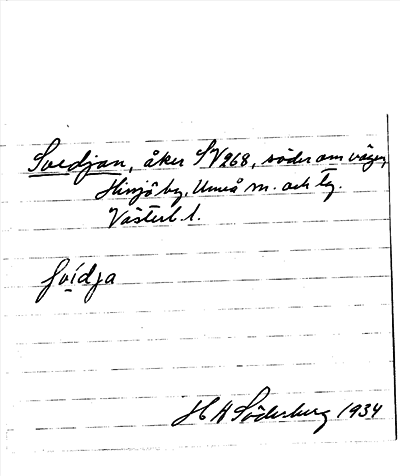 Svedjan, åker SV268, söder om vägen,
by, Umeå m. och tg.
Västerb. l.
svídja
H A Söderberg 1934